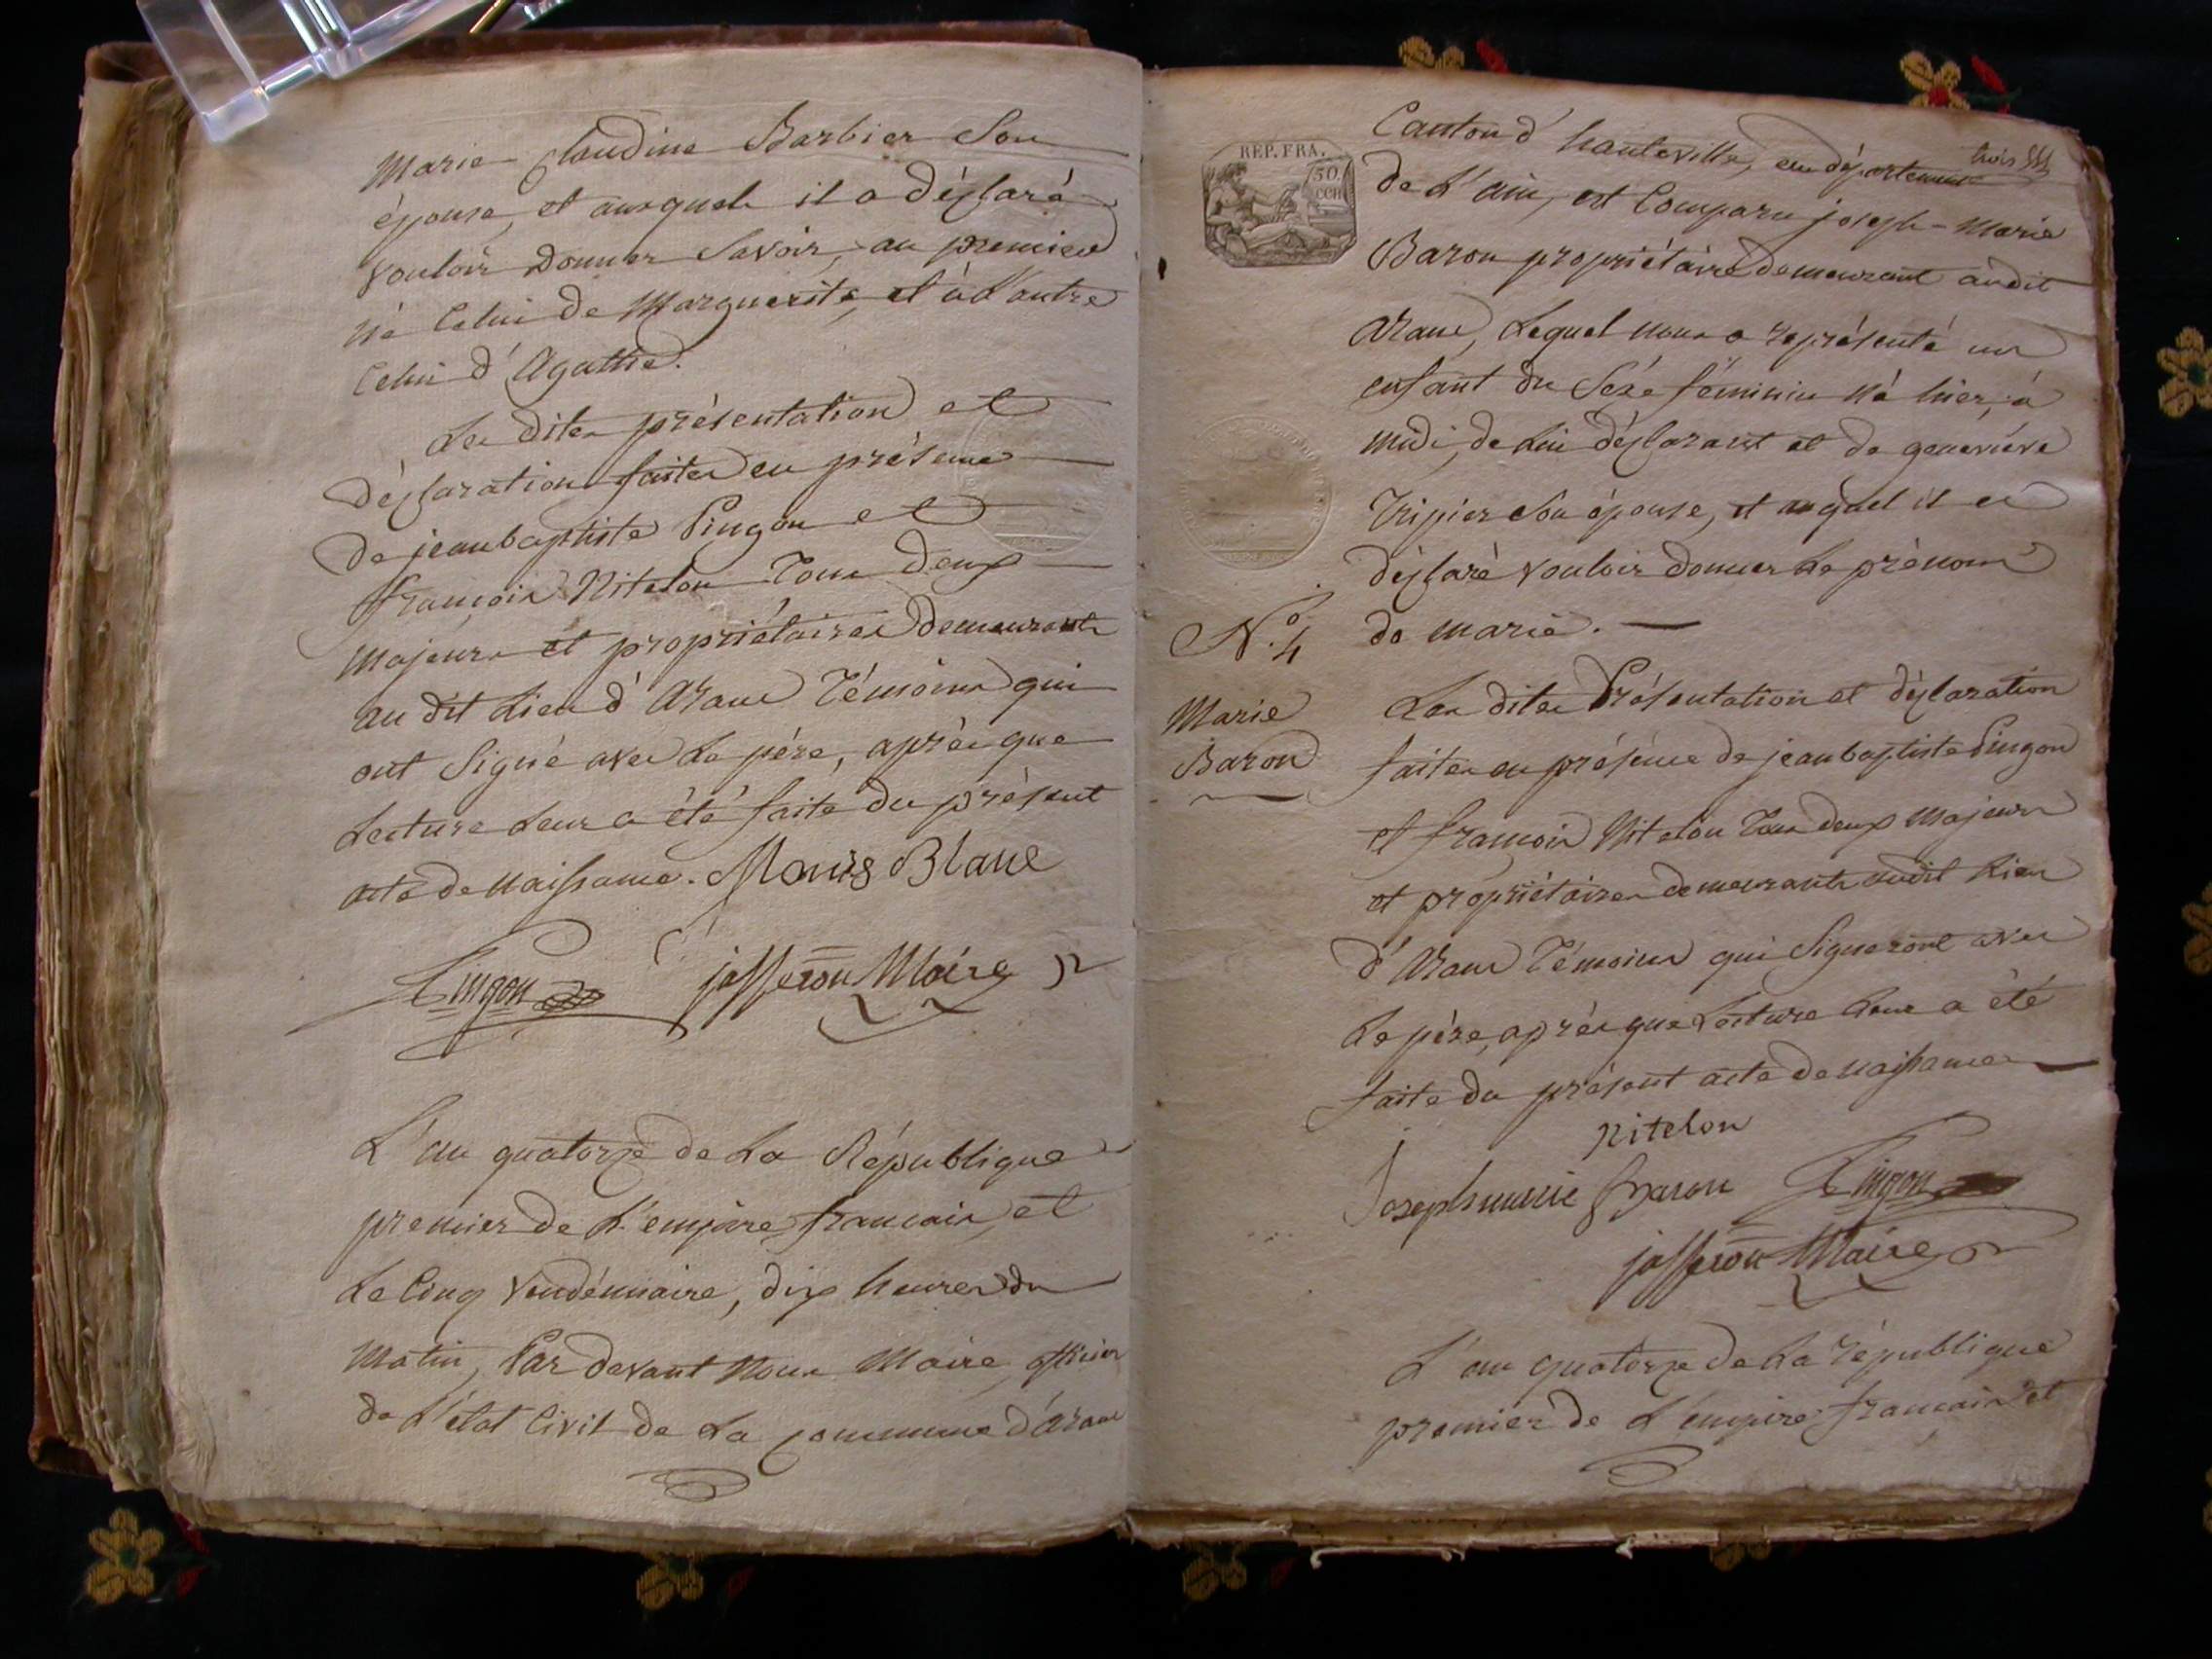 Marie Claudine Barbier Son
épouse, et auxquels il a déclaré
vouloir donner Savoir, au premier
né Celui de Marguerite, et à L'autre
Celui d'Agathe.
Les dites présentation et
déclaration faites en présence
de jean baptiste Pingon et
françois Nitelon Tous deux
Majeurs et propriétaires demeurants
au dit Lieu d'Arane Témoins qui
ont Signé avec Le père, après que
Lecture Leur a été faite du présent
acte de naissance. Mouis Blanc
Pingon josseron Maire
L'an quatorze de La République
premier de L'empire francais, et
Le Cinq Vendémiaire, dix heures du
Matin, Par devant Nous Maire officier
de L'état Civil de La commune d'Arane
trois
REP. FRA.
50
CEN
Canton d'hauteville, en département
de L'ain, est Comparu joseph-Marie
Baron propriétaire demeurant audit
Arane, Lequel nous a représenté un
enfant du Séxe féminin né hier, à
midi, de Lui déclarant et de geneviève
Tripier Son épouse, et auquel il a
déclaré vouloir donner Le prénom
de Marie.
N.º 4
Marie
Baron
Les dites Présentation et déclaration
faites en présence de jean baptiste Pingon
et françois Nitelon Tous deux Majeurs
et propriétaires demeurants audit Lieu
d'Arane Témoins qui Signeront avec
Le père, après que Lecture Leur a été
faite du présent acte de naissance
Nitelon
Joseph marie Baron Pingon
josseron Maire
L'an quatorze de La république
premier de L'empire francais et